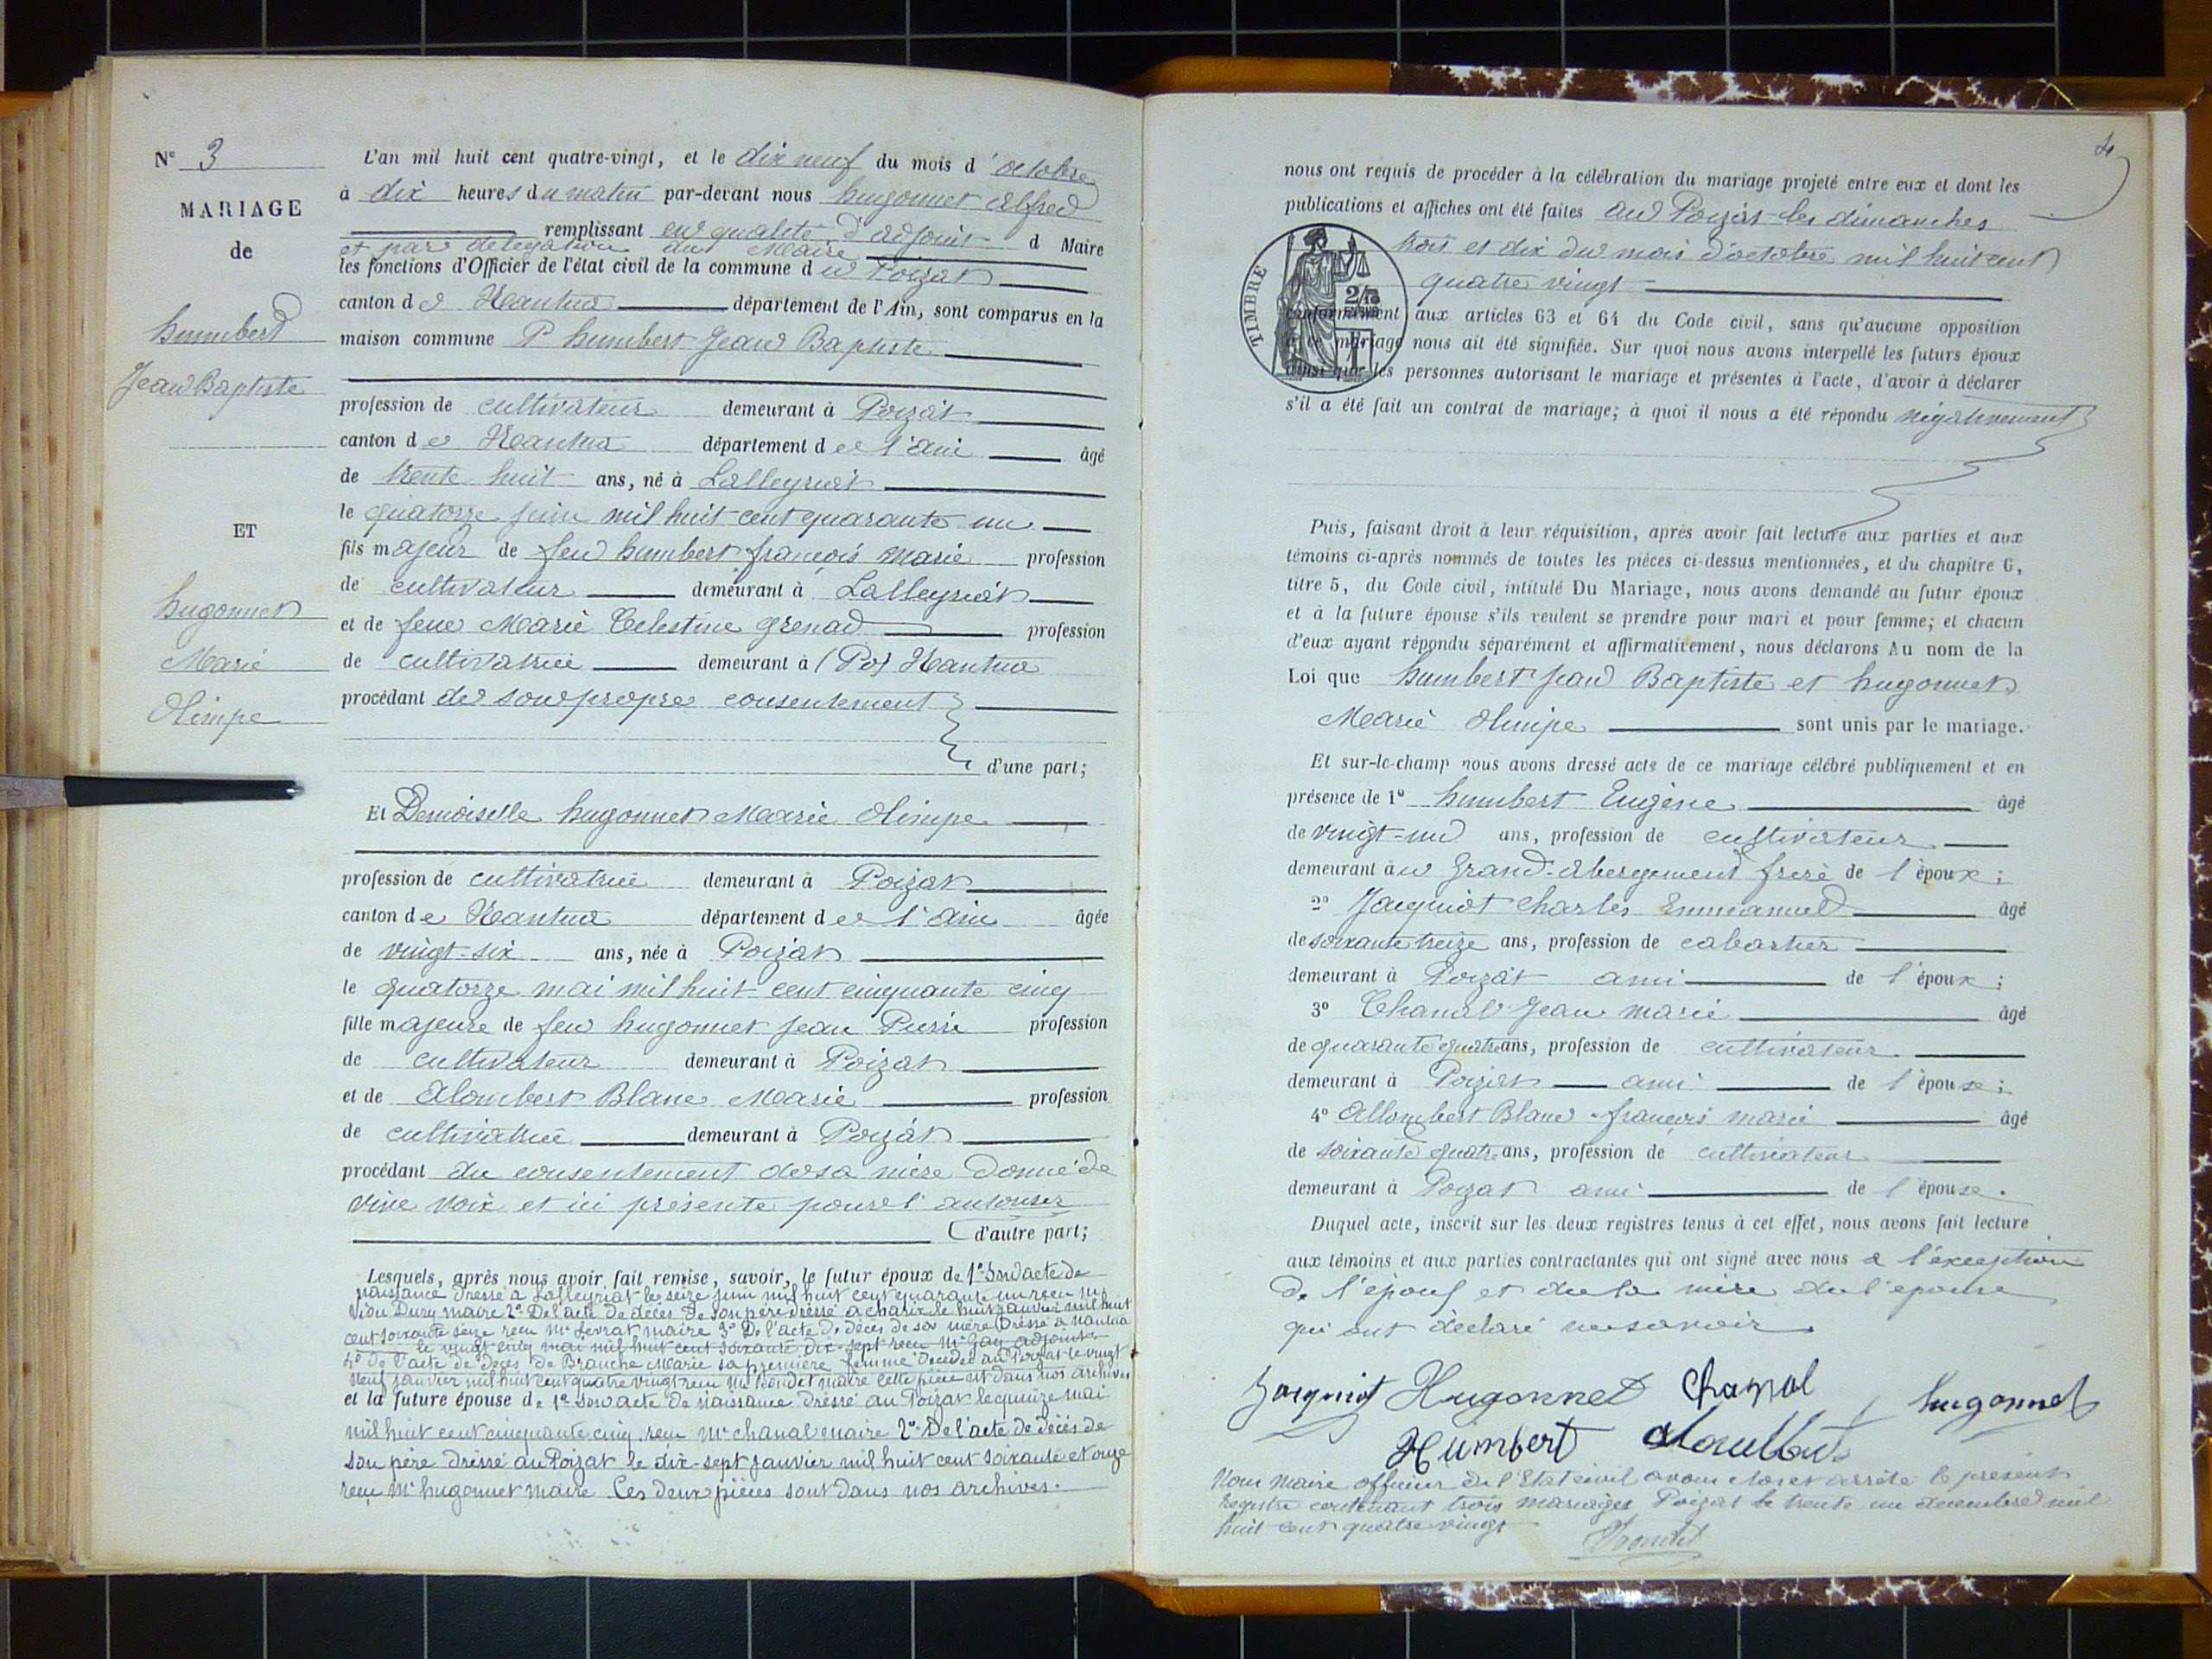 N° 3
MARIAGE
de
humbert
Jean Baptiste
ET
hugonnet
Marie
Olimpe
L'an mil huit cent quatre-vingt, et le dix neuf du mois d'octobre
à dix heures du matin par-devant nous hugonnet Alfred
remplissant en qualité d'adjoint d Maire
et par délégation du Maire
les fonctions d'Officier de l'état civil de la commune du Poizat
canton de Nantua département de l'Ain, sont comparus en la
maison commune P humbert Jean Baptiste
profession de cultivateur demeurant à Poizat
canton de Nantua département de l'ain âgé
de trente huit ans, né à Lalleyriat
le quatorze juin mil huit cent quarante un
fils majeur de feu humbert françois marie profession
de cultivateur demeurant à Lalleyriat
et de feue Marie Celestine grenad profession
de cultivatrice demeurant à (Po) Nantua
procédant de son propre consentement
d'une part;
Et Demoiselle hugonnet Marie Olimpe
profession de cultivatrice demeurant à Poizat
canton de Nantua département de l'ain âgée
de vingt-six ans, née à Poizat
le quatorze mai mil huit cent cinquante cinq
fille majeure de feu hugonnet Jean Pierre profession
de cultivateur demeurant à Poizat
et de Alombert Blanc Marie profession
de cultivatrice demeurant à Poizat
procédant du consentement de sa mère donné de
vive voix et ici présente pour l'autoriser
d'autre part;
Lesquels, après nous avoir fait remise, savoir, le futur époux de 1° Son acte de
naissance dressé à Lalleyriat le seize juin mil huit cent quarante un reçu Mr
Dury maire 2° De l'acte de décès de son père dressé à charix le huit janvier mil huit
cent soixante seize reçu Mr maire 3° De l'acte de décès de sa mère dressé à Nantua
le vingt cinq mai mil huit cent soixante dix-sept reçu Mr adjoint
4° de l'acte de décès de Branche Marie sa première femme décédée au Poizat le vingt
neuf janvier mil huit cent quatre vingt reçu Mr maire cette pièce est dans nos archives
et la future épouse de 1° Son acte de naissance dressé au Poizat le quinze mai
mil huit cent cinquante cinq reçu Mr chanal maire 2° De l'acte de décès de
son père dressé au Poizat le dix-sept janvier mil huit cent soixante et onze
reçu Mr hugonnet maire Ces deux pièces sont dans nos archives.
4
nous ont requis de procéder à la célébration du mariage projeté entre eux et dont les
publications et affiches ont été faites au Poizat les dimanches
trois et dix du mois d'octobre mil huit cent
quatre vingt
TIMBRE
conformément aux articles 63 et 64 du Code civil, sans qu'aucune opposition
à ce mariage nous ait été signifiée. Sur quoi nous avons interpellé les futurs époux
ainsi que les personnes autorisant le mariage et présentes à l'acte, d'avoir à déclarer
s'il a été fait un contrat de mariage; à quoi il nous a été répondu négativement
Puis, faisant droit à leur réquisition, après avoir fait lecture aux parties et aux
témoins ci-après nommés de toutes les pièces ci-dessus mentionnées, et du chapitre 6,
titre 5, du Code civil, intitulé Du Mariage, nous avons demandé au futur époux
et à la future épouse s'ils veulent se prendre pour mari et pour femme; et chacun
d'eux ayant répondu séparément et affirmativement, nous déclarons Au nom de la
Loi que humbert Jean Baptiste et hugonnet
Marie Olimpe sont unis par le mariage.
Et sur-le-champ nous avons dressé acte de ce mariage célébré publiquement et en
présence de 1° humbert Eugène âgé
de vingt-un ans, profession de cultivateur
demeurant au Grand-Abergement frère de l'époux;
2° Jacquiot Charles Emmanuel âgé
de soixante treize ans, profession de cabartier
demeurant à Poizat ami de l'époux;
3° Chanal Jean marie âgé
de quarante quatre ans, profession de cultivateur
demeurant à Poizat ami de l'épouse;
4° Allombert Blanc françois marie âgé
de soixante quatre ans, profession de cultivateur
demeurant à Poizat ami de l'épouse.
Duquel acte, inscrit sur les deux registres tenus à cet effet, nous avons fait lecture
aux témoins et aux parties contractantes qui ont signé avec nous à l'exception
de l'époux et de la mère de l'épouse
qui ont déclaré ne savoir
Jacquiot Hugonnet Chanal hugonnet
Humbert
Nous maire officier de l'Etat civil avons clos et arrêté le présent
registre contenant trois mariages Poizat le trente un decembre mil
huit cent quatre vingt